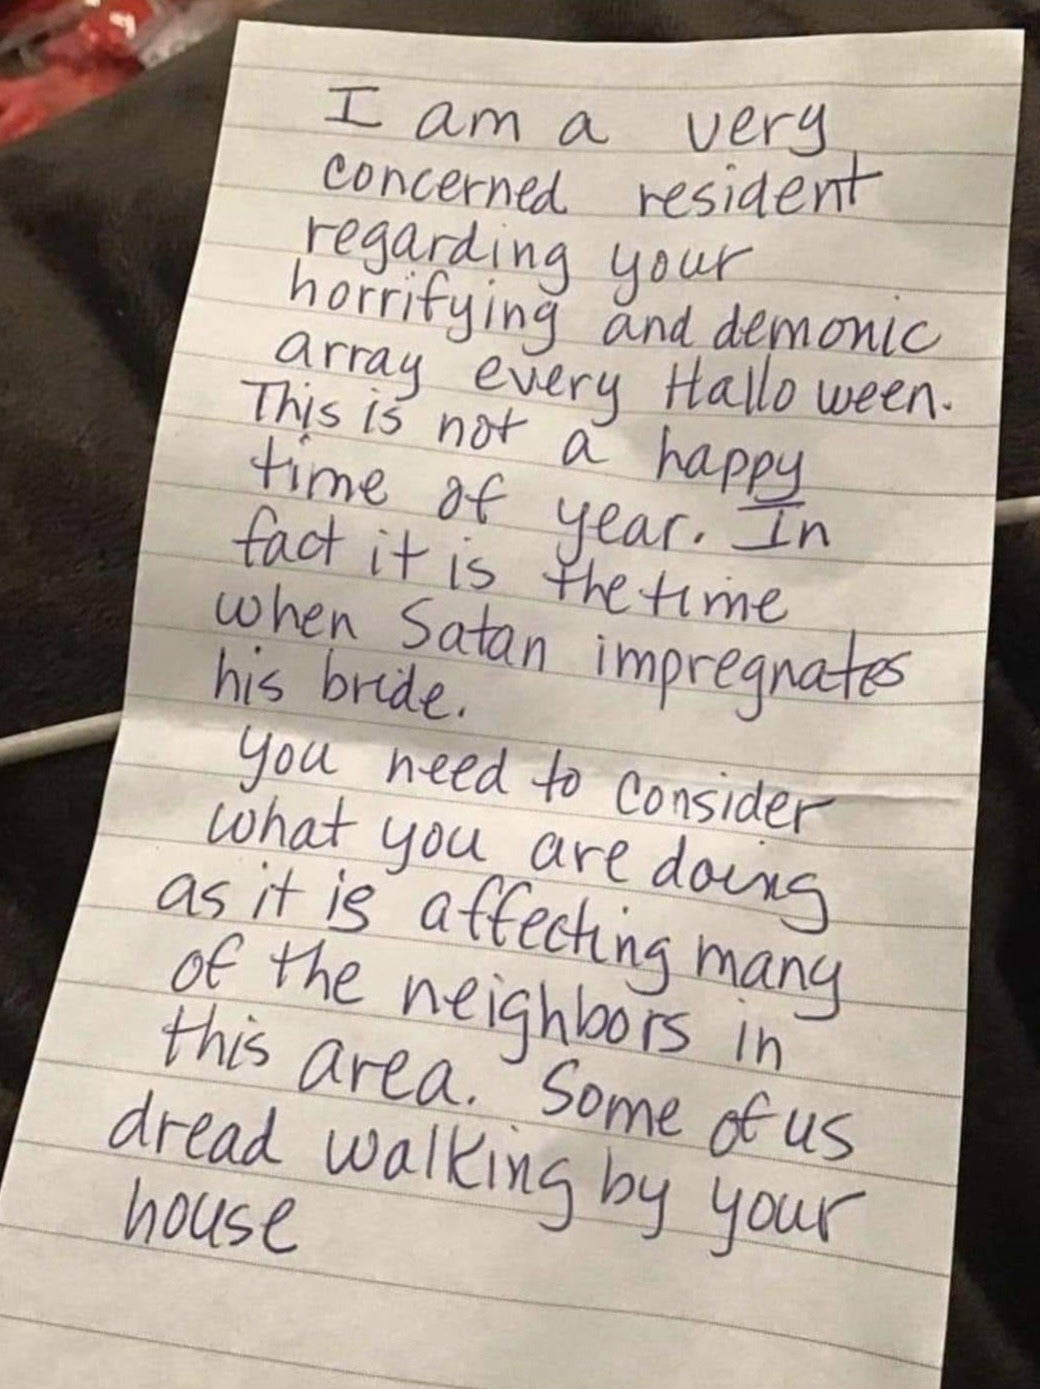 I am a very
concerned resident
regarding your
horrifying and demonic
array every Halloween.
This is not a happy
time of year. In
fact it is the time
when Satan impregnates
his bride.
you need to consider
what you are doing
as it is affecting many
of the neighbors in
this area. Some of us
dread walking by your
house